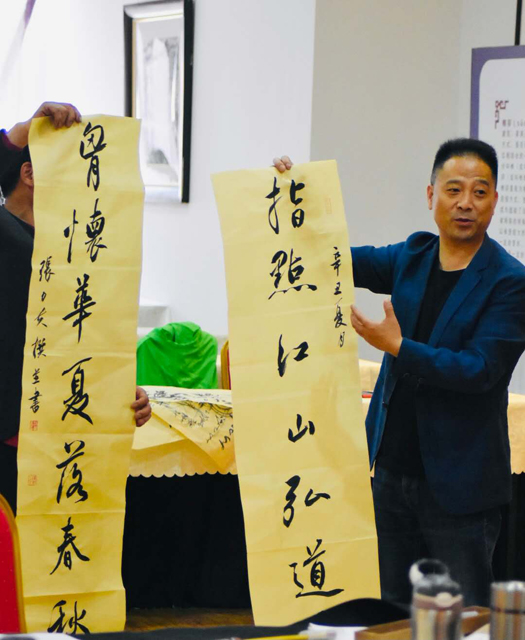 辛丑夏月
指點江山弘道
胷懷華夏落春秋
張力夫撰並書